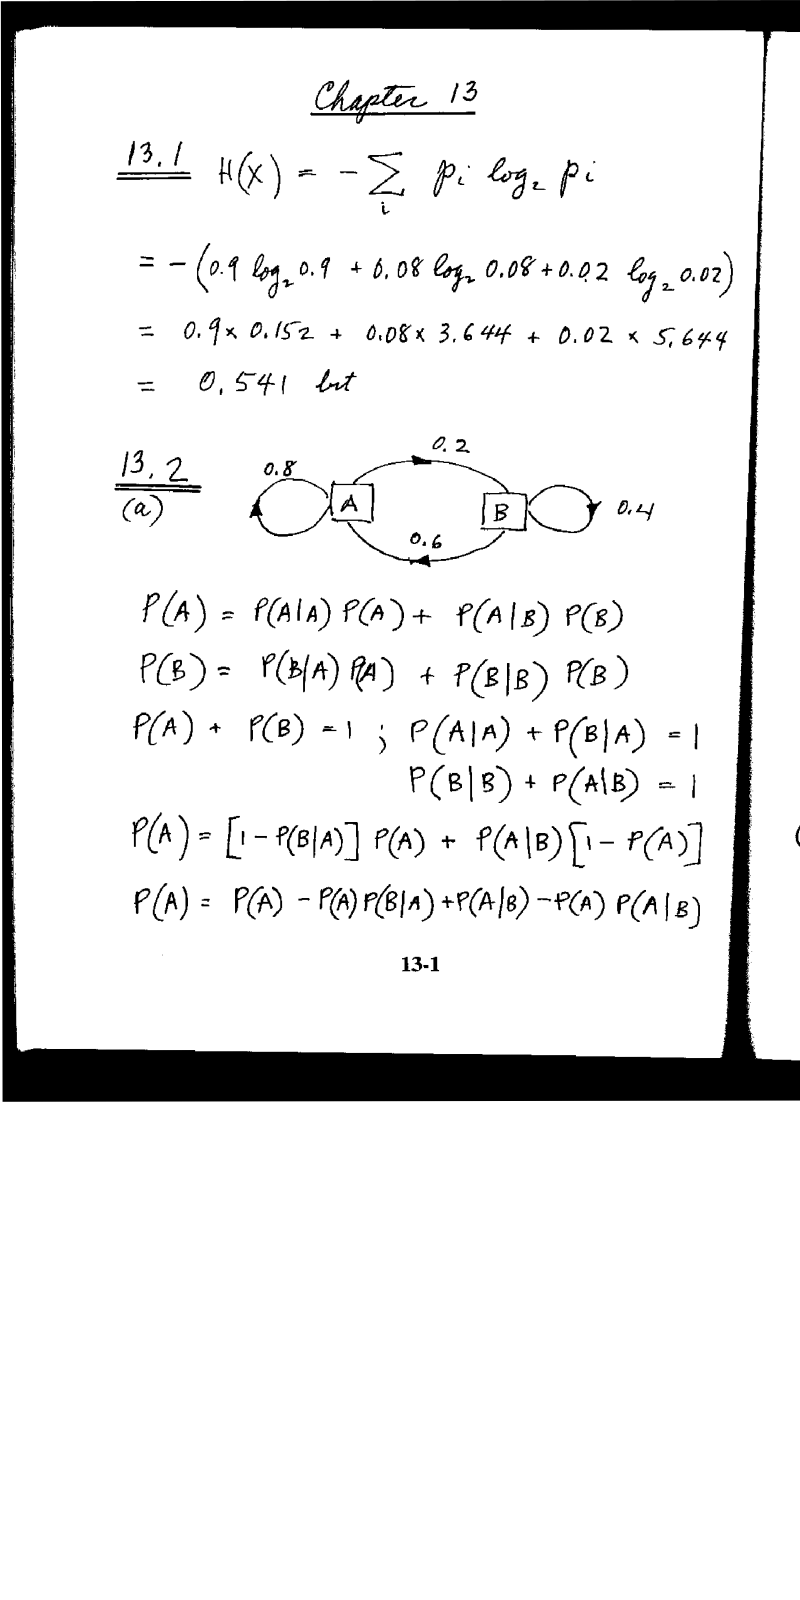 Chapter 13
13.1 H(X) = - ∑ᵢ pi log₂ pi
= - (0.9 log₂ 0.9 + 0.08 log₂ 0.08 + 0.02 log₂ 0.02)
= 0.9 × 0.152 + 0.08 × 3.644 + 0.02 × 5.644
= 0.541 bit
13.2
(a)
0.2
0.8
A
B
0.4
0.6
P(A) = P(A|A) P(A) + P(A|B) P(B)
P(B) = P(B|A) P(A) + P(B|B) P(B)
P(A) + P(B) = 1 ; P(A|A) + P(B|A) = 1
P(B|B) + P(A|B) = 1
P(A) = [1 - P(B|A)] P(A) + P(A|B) [1 - P(A)]
P(A) = P(A) - P(A) P(B|A) + P(A|B) - P(A) P(A|B)
13-1